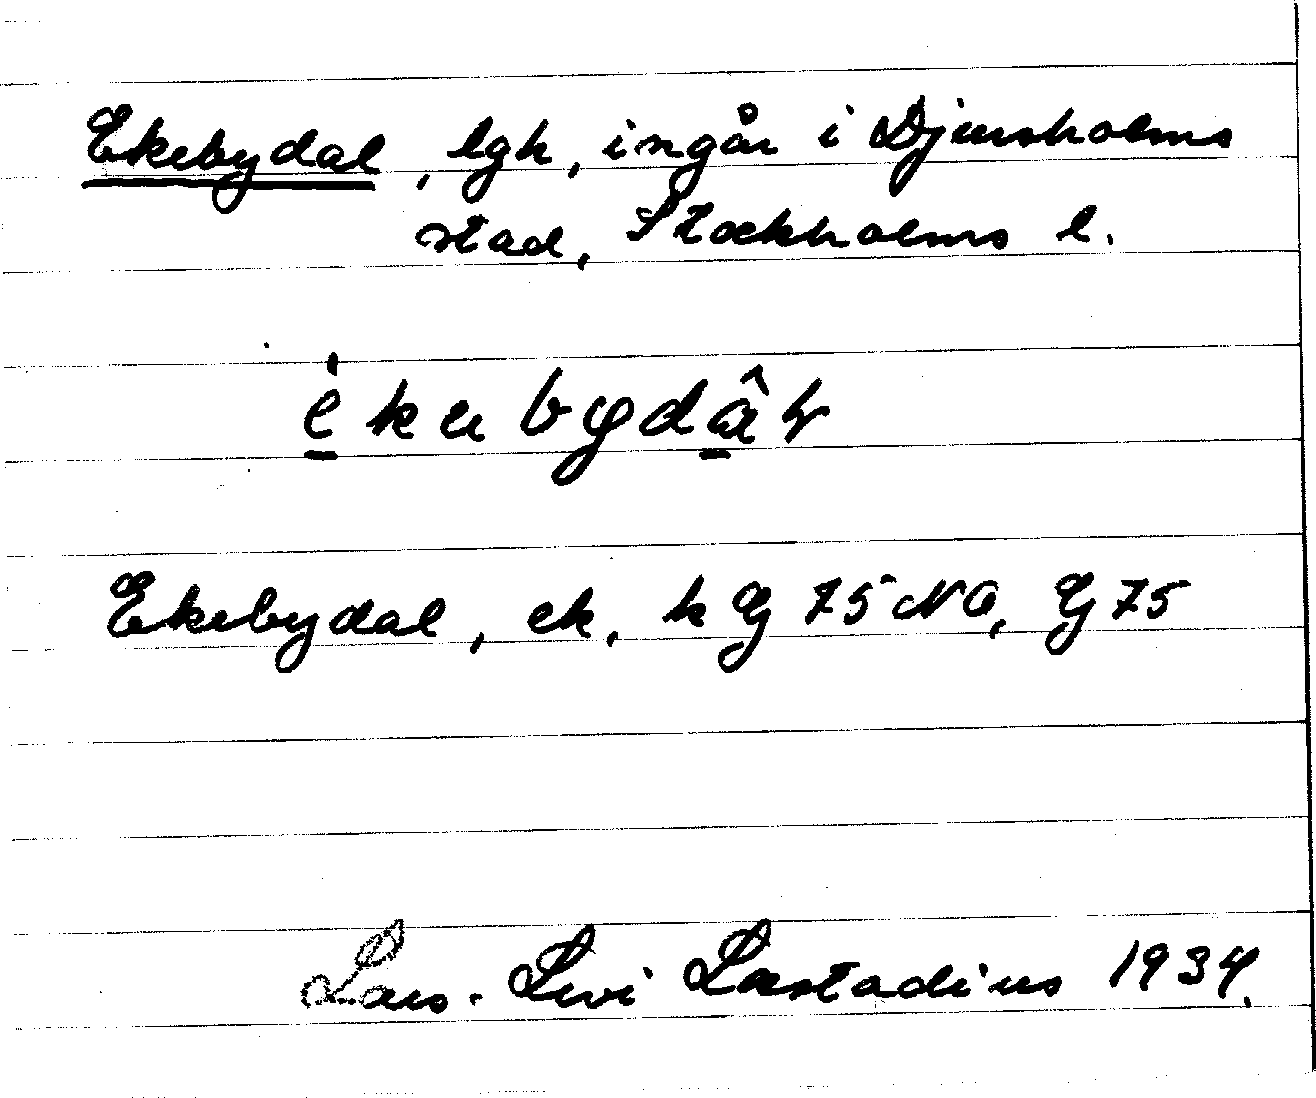 Ekebydal, lgh, ingår i Djursholms
stad, Stockholms l.
ėkebydâɫ
Ekebydal, ek. k G 75 NO, G 75
Lars-Levi Læstadius 1934.